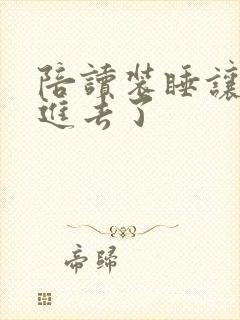 陪讀裝睡讓
進去了
帝歸